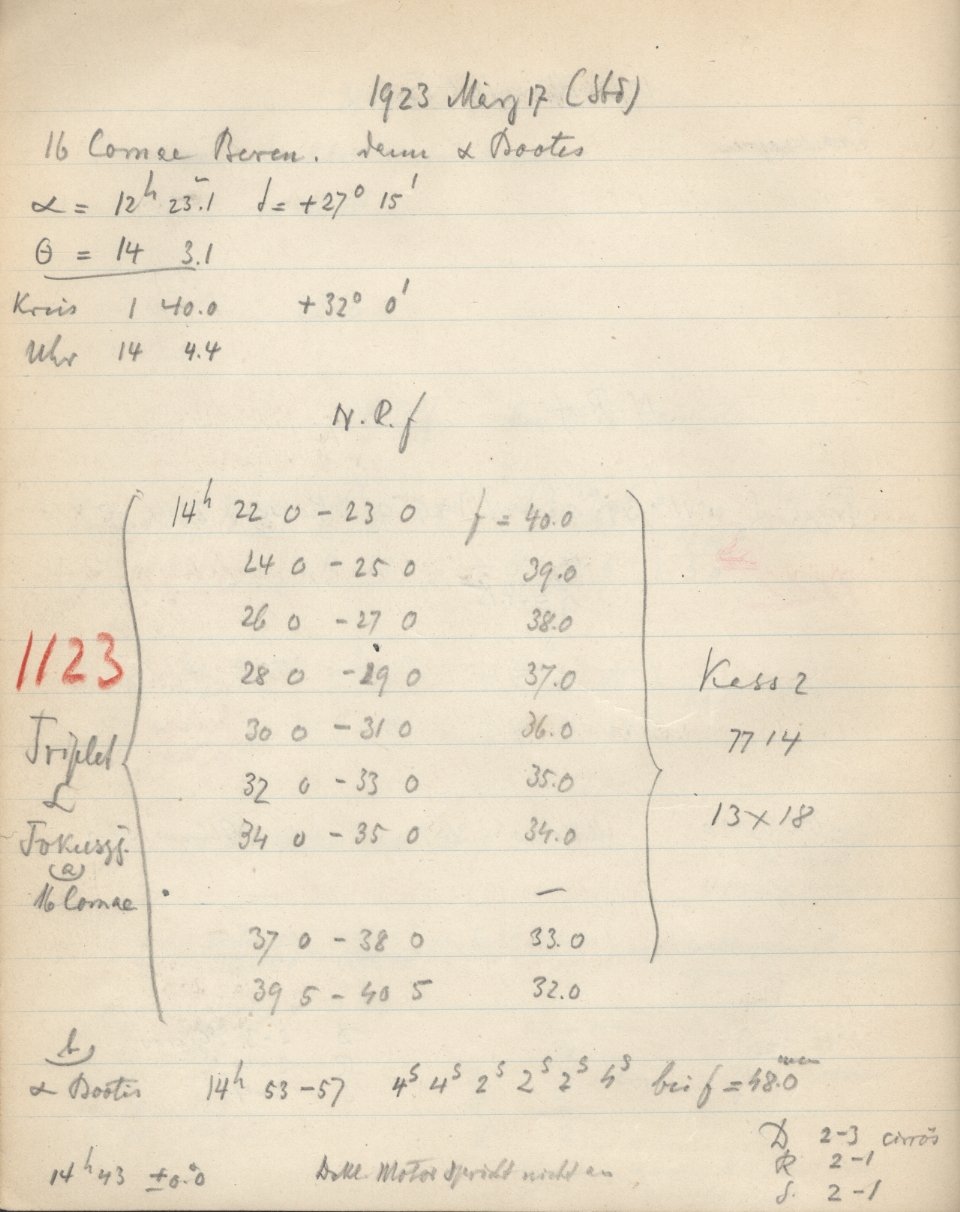 1923 März 17 (Std)
16 Comae Beren. dann α Bootes
α = 12h 23.1 δ = +27° 15'
θ = 14 3.1
Kreis 1 40.0 +32° 0'
Uhr 14 4.4
N.R.f
14h 22 0 - 23 0 f = 40.0
24 0 - 25 0 39.0
26 0 - 27 0 38.0
28 0 - 29 0 37.0
30 0 - 31 0 36.0
32 0 - 33 0 35.0
34 0 - 35 0 34.0
—
37 0 - 38 0 33.0
39 5 - 40 5 32.0
1123
Triplet
L
Fokussg.
a
16 Comae
Kass 2
7714
13 x 18
b
α Bootis 14h 53-57 4s 4s 2s 2s 2s 4s bei f = 48.0 mm
14h 43 ±0.0
Dekl. Motor spricht nicht an
D 2-3 cirrös
R 2-1
S. 2-1